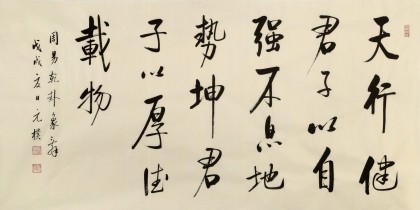 天行健
君子以自
强不息地
勢坤君
子以厚德
載物
周易乾卦象辞
戊戌夏日元模